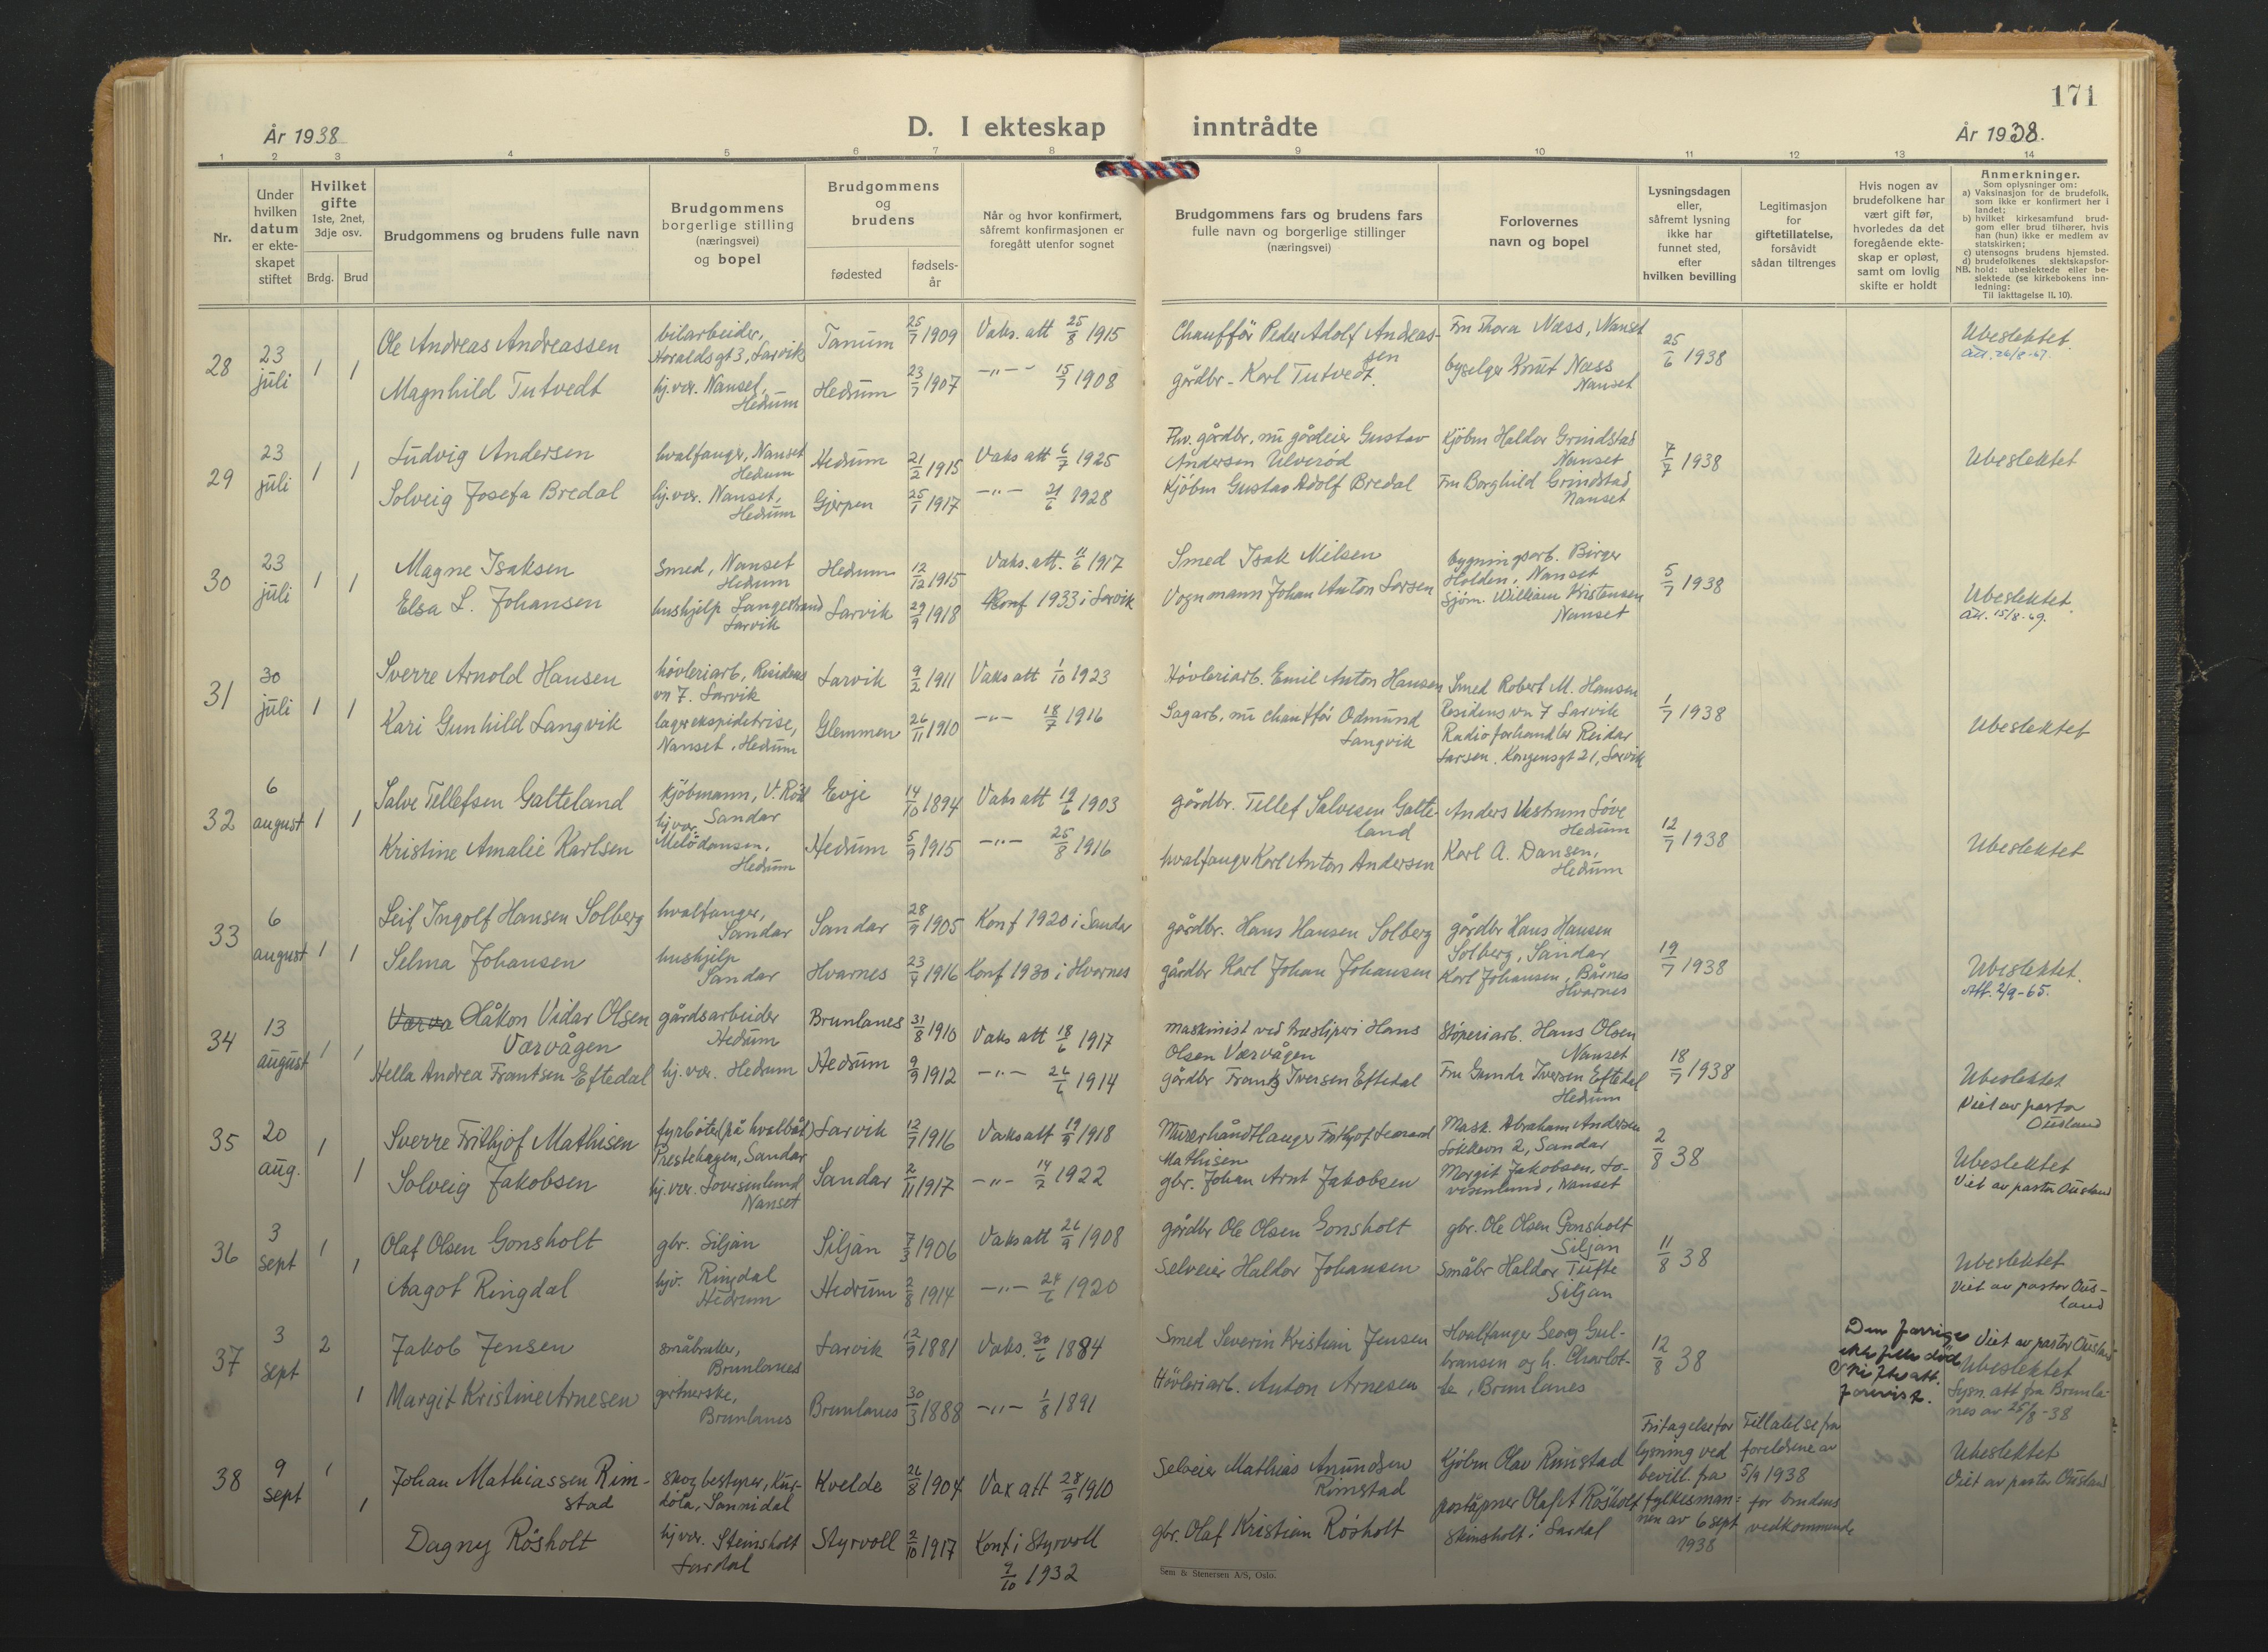 171
År 1938
D. I ekteskap inntrådte
År 1938.
1 2 3 4 5 6 7 8 9 10 11 12 13 14
Nr.
Under
hvilken
datum
er ekte-
skapet
stiftet
Hvilket
gifte
1ste, 2net,
3dje osv.
Brdg. Brud
Brudgommens og brudens fulle navn
Brudgommens
borgerlige stilling
(næringsvei)
og bopel
Brudgommens
og
brudens
fødested
fødsels-
år
Når og hvor konfirmert,
såfremt konfirmasjonen er
foregått utenfor sognet
Brudgommens fars og brudens fars
fulle navn og borgerlige stillinger
(næringsvei)
Forlovernes
navn og bopel
Lysningsdagen
eller,
såfremt lysning
ikke har
funnet sted,
efter
hvilken bevilling
Legitimasjon
for
giftetillatelse,
forsåvidt
sådan tiltrenges
Hvis nogen av
brudefolkene har
vært gift før,
hvorledes da det
foregående ekte-
skap er opløst,
samt om lovlig
skifte er holdt
Anmerkninger.
Som oplysninger om:
a) Vaksinasjon for de brudefolk,
som ikke er konfirmert her i
landet;
b) hvilket kirkesamfund brud-
gom eller brud tilhører, hvis
han (hun) ikke er medlem av
statskirken;
c) utensogns brudens hjemsted.
d) brudefolkenes slektskapsfor-
NB. hold: ubeslektede eller be-
slektede (se kirkebokens inn-
ledning:
Til iakttagelse II, 10).
28
23
juli
1 1
Ole Andreas Andreassen
Magnhild Tutvedt
bilarbeider,
Haraldsgt 3, Larvik
hj.vær. Nanset,
Hedrum
Tanum
Hedrum
25/7 1909
23/7 1907
Vaks. att 25/8 1915
-"- 15/7 1908
Chauffør Peder Adolf Andreas-
sen
gårdbr. Karl Tutvedt.
Fru Thora Næss, Nanset
byselger Knut Næss
Nanset
25/6 1938
Ubeslektet.
att. 26/8-67.
29
23
juli
1 1
Ludvig Andersen
Solveig Josefa Bredal
hvalfanger, Nanset
Hedrum
hj.vær. Nanset,
Hedrum
Hedrum
Gjerpen
21/2 1915
25/1 1917
Vaks att 6/7 1925
-"- 21/6 1928
Fhv. gårdbr, nu gårdeier Gustav
Andersen Ulverød
Kjøbm Gustav Adolf Bredal
Kjøbm Haldor Grindstad
Nanset
Fru Borghild Grindstad
Nanset
7/7 1938
Ubeslektet
30
23
juli
1 1
Magne Isaksen
Elsa L. Johansen
Smed, Nanset
Hedrum
hushjelp Langestrand
Larvik
Hedrum
Larvik
12/12 1915
29/9 1918
Vaks. att. 11/6 1917
Konf 1933 i Larvik
Smed Isak Nilsen
Vognmann Johan Anton Larsen
bygningsarb. Birger
Holden, Nanset
Sjøm. William Kristensen
Nanset
5/7 1938
Ubeslektet.
att. 15/8-69.
31
30
juli
1 1
Sverre Arnold Hansen
Kari Gunhild Langvik
høvleriarb, Residens
vn 7. Larvik
lagerekspiditrise,
Nanset, Hedrum
Larvik
Glemmen
9/2 1911
26/11 1910
Vaks att 1/10 1923
-"- 18/7 1916
Høvleriarb. Emil Anton Hansen
Sagarb, nu chauffør Odmund
Langvik
Smed Robert M. Hansen
Residens vn 7 Larvik
Radioforhandler Reidar
Larsen, Kongensgt 21, Larvik
1/7 1938
Ubeslektet
32
6
august
1 1
Salve Tellefsen Galteland
Kristine Amalie Karlsen
Kjøbmann,
Sandar
hj vær.
Hedrum
Evje
Hedrum
14/10 1894
5/9 1915
Vaks att 19/6 1903
-"- 25/8 1916
gårdbr. Tellef Salvesen Galte-
land
hvalfanger Karl Anton Andersen
Anders Vestrum Løve
Hedrum
Karl A. Dansen,
Hedrum
12/7 1938
Ubeslektet
33
6
august
1 1
Leif Ingolf Hansen Solberg
Selma Johansen
hvalfanger,
Sandar
hushjelp
Sandar
Sandar
Hvarnes
28/9 1905
23/4 1916
Konf 1920 i Sandar
Konf 1930 i Hvarnes
gårdbr. Hans Hansen Solberg
gårdbr Karl Johan Johansen
gårdbr Hans Hansen
Solberg, Sandar
Karl Johansen, Bårnes
Hvarnes
19/7 1938
Ubeslektet.
Att. 2/9-65.
34
13
august
1 1
Værvå Håkon Vidar Olsen
Værvågen
Hella Andrea Frantsen Eftedal
gårdsarbeider
Hedrum
hj.vær. Hedrum
Brunlanes
Hedrum
31/8 1910
9/9 1912
Vaks att 18/6 1917
-"- 26/6 1914
maskinist ved træsliperi Hans
Olsen Værvågen
gårdbr Frantz Iversen Eftedal
Støperiarb. Hans Olsen
Nanset
Fru Gunda Iversen Eftedal
Hedrum
18/7 1938
Ubeslektet
Viet av pastor
Ousland
35
20
aug.
1
1
Sverre Frithjof Mathisen
Solveig Jakobsen
fyrbøter (på hvalbåt)
Prestehagen, Sandar
hj.vær. Lovisenlund
Nanset
Larvik
Sandar
12/7 1916
2/11 1917
Vaks att 19/9 1918
-"- 14/7 1922
Murerhåndtlanger Frithjof Leonard
Mathisen
gbr. Johan Arnt Jakobsen
Mask. Abraham Andersen
2, Sandar
Margit Jakobsen, Lo-
visenlund, Nanset
2/8 38
Ubeslektet
Viet av pastor Ousland
36
3
sept
1
1
Olaf Olsen Gonsholt
Aagot Ringdal
gbr. Siljan
hjv. Ringdal
Hedrum
Siljan
Hedrum
7/3 1906
2/8 1914
Vaks att 26/9 1908
-"- 24/6 1920
gårdbr Ole Olsen Gonsholt
Selveier Haldor Johansen
gbr. Ole Olsen Gonsholt
Siljan
småbr Haldor Tufte
Siljan
11/8 38
Ubeslektet
Viet av pastor Ous-
land
37
3
sept
2
1
Jakob Jensen
Margit Kristine Arnesen
småbruker,
Brunlanes
gartnerske,
Brunlanes
Larvik
Brunlanes
12/9 1881
30/3 1888
Vaks. 30/6 1884
-"- 1/8 1891
Smed Severin Kristian Jensen
Høvleriarb. Anton Arnesen
Hvalfanger Georg Gul-
bransen og h. Charlot-
te, Brunlanes
12/8 38
Den forrige
ektefelle død
Skifteatt.
forevist.
Viet av pastor Ousland
Ubeslektet
Lysn. att fra Brunla-
nes av 25/8-38
38
9
sept
1
1
Johan Mathiassen Rim-
stad
Dagny Røsholt
skogbestyrer, Kur-
døla, Sannidal
hj vær. Steinsholt
Lardal
Kvelde
Styrvoll
26/8 1904
2/10 1917
Vax att 28/9 1910
Konf i Styrvoll
9/10 1932
Selveier Mathias Amundsen
Rimstad
gbr. Olaf Kristian Røsholt
Kjøbm Olav Rimstad
poståpner Olaf A Røsholt
Skinsholt i Lardal
Fritagelse for
lysning ved
bevill. fra
fylkesman-
nen av 6 sept
1938
Tillatelse fra
foreldrene av
5/9 1938
for brudens
vedkommende
Ubeslektet
Viet av pastor Ousland
Sem & Stenersen A/S, Oslo.